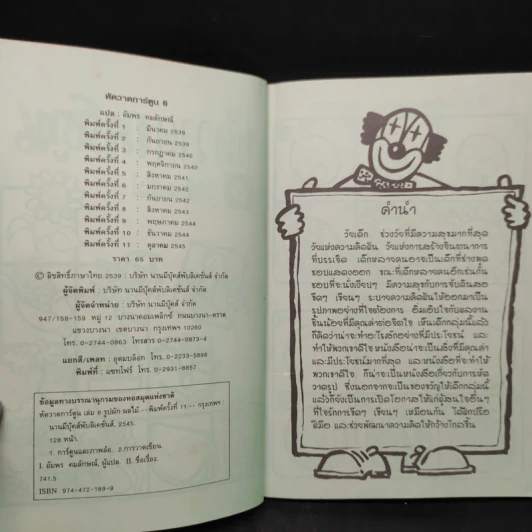 หัดวาดการ์ตูน 6
แปล : อัมพร คมลักษณ์
พิมพ์ครั้งที่ 1 : มีนาคม 2539
พิมพ์ครั้งที่ 2 : กันยายน 2539
พิมพ์ครั้งที่ 3 : กรกฎาคม 2540
พิมพ์ครั้งที่ 4 : พฤศจิกายน 2540
พิมพ์ครั้งที่ 5 : สิงหาคม 2541
พิมพ์ครั้งที่ 6 : มกราคม 2542
พิมพ์ครั้งที่ 7 : กันยายน 2542
พิมพ์ครั้งที่ 8 : สิงหาคม 2543
พิมพ์ครั้งที่ 9 : พฤษภาคม 2544
พิมพ์ครั้งที่ 10 : ธันวาคม 2544
พิมพ์ครั้งที่ 11 : ตุลาคม 2545
ราคา 65 บาท
© ลิขสิทธิ์ภาษาไทย 2539 : บริษัท นานมีบุ๊คส์พับลิเคชั่นส์ จำกัด
ผู้จัดพิมพ์ : บริษัท นานมีบุ๊คส์พับลิเคชั่นส์ จำกัด
ผู้จัดจำหน่าย : บริษัท นานมีบุ๊คส์ จำกัด
947/158-159 หมู่ 12 บางนาคอมเพล็กซ์ ถนนบางนา-ตราด
แขวงบางนา เขตบางนา กรุงเทพฯ 10260
โทร. 0-2744-0863 โทรสาร 0-2744-0873-4
แยกสี/เพลท : ยูคมบล๊อก โทร. 0-2233-5896
พิมพ์ที่ : แซทโฟร์ โทร. 0-2931-8857
ข้อมูลทางบรรณานุกรมของหอสมุดแห่งชาติ
หัดวาดการ์ตูน เล่ม 6 รูปผัก ผลไม้.--พิมพ์ครั้งที่ 11.-- กรุงเทพฯ
นานมีบุ๊คส์พับลิเคชั่นส์, 2545.
128 หน้า.
1. การ์ตูนและภาพล้อ. 2.การวาดเขียน.
I. อัมพร คมลักษณ์, ผู้แปล. II. ชื่อเรื่อง.
741.5
ISBN 974-472-189-9
คำนำ
วัยเด็ก ช่วงวัยที่มีความสุขมากที่สุด
วัยแห่งความคิดฝัน วัยแห่งการสร้างจินตนาการ
ที่บรรเจิด เด็กหลายคนอาจเป็นเด็กที่ช่างพูด
ชอบแสดงออก ขณะที่เด็กหลายคนอีกเช่นกัน
ชอบที่จะนั่งเงียบๆ มีความสุขกับการขีดดินสอ
ขีดๆ เขียนๆ ระบายความคิดฝันให้ออกมาเป็น
รูปภาพอย่างที่ใจต้องการ อิ่มเอิบใจกับผลงาน
ชิ้นน้อยที่มีคุณค่าต่อจิตใจ เห็นเด็กกลุ่มนี้แล้ว
ก็คิดว่าน่าจะทำอะไรสักอย่างที่มีประโยชน์ และ
ทำให้พวกเขาดีใจ หนังสือน่าจะเป็นสิ่งที่มีคุณค่า
และมีประโยชน์มากที่สุด และหนังสือที่จะทำให้
พวกเขาดีใจ ก็น่าจะเป็นหนังสือเกี่ยวกับการหัด
วาดรูป ซึ่งนอกจากจะเป็นของขวัญให้เด็กกลุ่มนี้
แล้วก็ยังเป็นการเปิดโอกาสให้แก่ผู้สนใจอื่นๆ
ที่ใจรักการขีดๆ เขียนๆ เหมือนกัน ได้ฝึกปรือ
ฝีมือ และช่วยพัฒนาความคิดให้กว้างไกลขึ้น